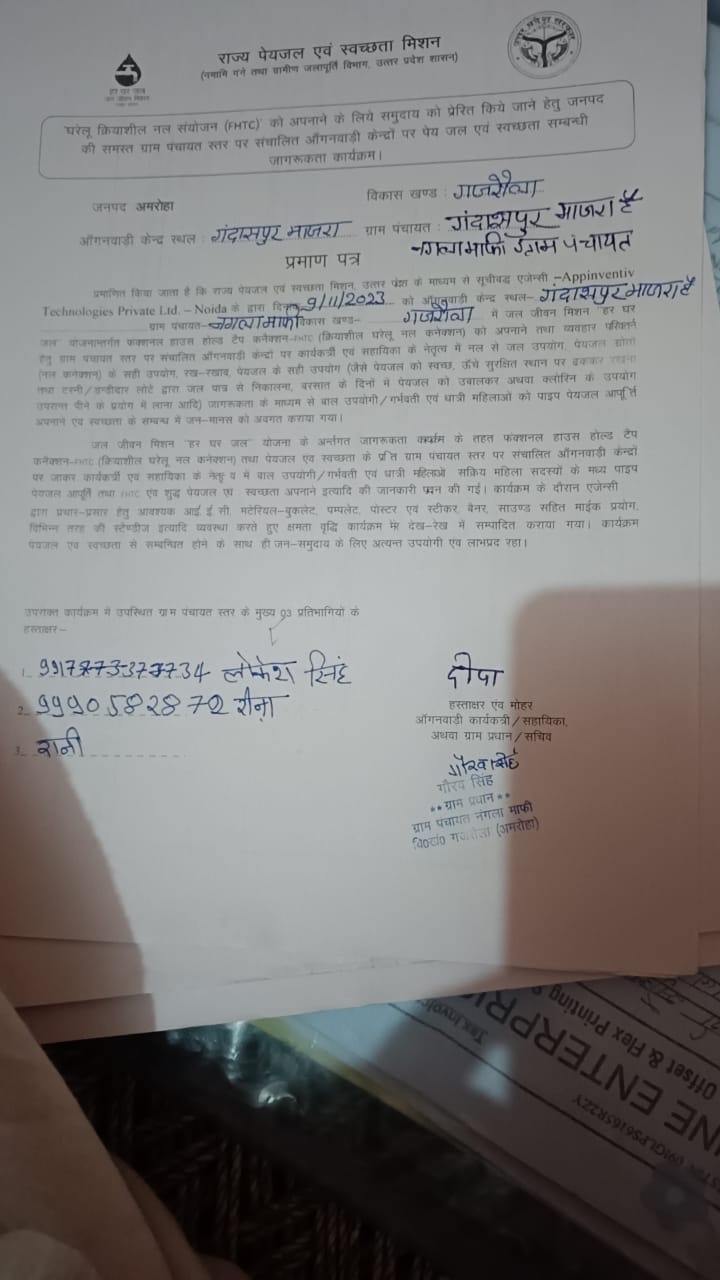 राज्य पेयजल एवं स्वच्छता मिशन
(नमामि गंगे तथा ग्रामीण जलापूर्ति विभाग, उत्तर प्रदेश शासन)
हर घर जल
जल जीवन मिशन
'घरेलू क्रियाशील नल संयोजन (FHTC)' को अपनाने के लिये समुदाय को प्रेरित किये जाने हेतु जनपद
की समस्त ग्राम पंचायत स्तर पर संचालित आँगनवाड़ी केन्द्रों पर पेय जल एवं स्वच्छता सम्बन्धी
जागरूकता कार्यक्रम।
जनपद अमरोहा विकास खण्ड : गजरौला
आँगनवाड़ी केन्द्र स्थल : गंदासपुर माजरा ग्राम पंचायत : गंदासपुर माजरा है
नगलामाफी ग्राम पंचायत
प्रमाण पत्र
प्रमाणित किया जाता है कि राज्य पेयजल एवं स्वच्छता मिशन, उत्तर प्रदेश के माध्यम से सूचीबद्ध एजेन्सी –Appinventiv
Technologies Private Ltd. – Noida के द्वारा दिनांक 9/11/2023 को आँगनवाड़ी केन्द्र स्थल– गंदासपुर माजरा है
ग्राम पंचायत– नगलामाफी विकास खण्ड– गजरौला में जल जीवन मिशन "हर घर
जल" योजनान्तर्गत फंक्शनल हाउस होल्ड टैप कनेक्शन–FHTC (क्रियाशील घरेलू नल कनेक्शन) को अपनाने तथा व्यवहार परिवर्तन
हेतु ग्राम पंचायत स्तर पर संचालित आँगनवाड़ी केन्द्रों पर कार्यकत्री एवं सहायिका के नेतृत्व में नल से जल उपयोग, पेयजल स्रोतों
(नल कनेक्शन) के सही उपयोग, रख-रखाव, पेयजल के सही उपयोग (जैसे पेयजल को स्वच्छ, ऊँचे सुरक्षित स्थान पर ढककर रखना
तथा टस्नी/डण्डीदार लोटे द्वारा जल पात्र से निकालना, बरसात के दिनों में पेयजल को उबालकर अथवा क्लोरिन के उपयोग
उपरान्त पीने के प्रयोग में लाना आदि) जागरूकता के माध्यम से बाल उपयोगी/गर्भवती एवं धात्री महिलाओं को पाइप पेयजल आपूर्ति
अपनाने एवं स्वच्छता के सम्बन्ध में जन-मानस को अवगत कराया गया।
जल जीवन मिशन "हर घर जल" योजना के अर्न्तगत जागरूकता कार्यक्रम के तहत फंक्शनल हाउस होल्ड टैप
कनेक्शन–FHTC (क्रियाशील घरेलू नल कनेक्शन) तथा पेयजल एवं स्वच्छता के प्रति ग्राम पंचायत स्तर पर संचालित आँगनवाड़ी केन्द्रों
पर जाकर कार्यकर्त्री एवं सहायिका के नेतृत्व में बाल उपयोगी/गर्भवती एवं धात्री महिलाओं सक्रिय महिला सदस्यों के मध्य पाइप
पेयजल आपूर्ति तथा FHTC एवं शुद्ध पेयजल एवं स्वच्छता अपनाने इत्यादि की जानकारी प्रदान की गई। कार्यक्रम के दौरान एजेन्सी
द्वारा प्रचार-प्रसार हेतु आवश्यक आई.ई.सी. मटेरियल-बुकलेट, पम्पलेट, पोस्टर एवं स्टीकर, बैनर, साउण्ड सहित माईक प्रयोग,
विभिन्न तरह की स्टैण्डीज इत्यादि व्यवस्था करते हुए क्षमता वृद्धि कार्यक्रम मेरे देख-रेख में सम्पादित कराया गया। कार्यक्रम
पेयजल एवं स्वच्छता से सम्बन्धित होने के साथ ही जन-समुदाय के लिए अत्यन्त उपयोगी एवं लाभप्रद रहा।
उपरोक्त कार्यक्रम में उपस्थित ग्राम पंचायत स्तर के मुख्य 03 प्रतिभागियों के
हस्ताक्षर–
1. लोकेश सिंह
2. 9990582872 रीना
3. रानी
दीपा
हस्ताक्षर एंव मोहर
आँगनवाड़ी कार्यकत्री/सहायिका,
अथवा ग्राम प्रधान/सचिव
गौरव सिंह
गौरव सिंह
**ग्राम प्रधान**
ग्राम पंचायत नंगला माफी
वि०ख० गजरौला (अमरोहा)
Tax Invoic
NE ENTERPRI
Offset & Flex Printing &
09IGLPS6165R2ZY